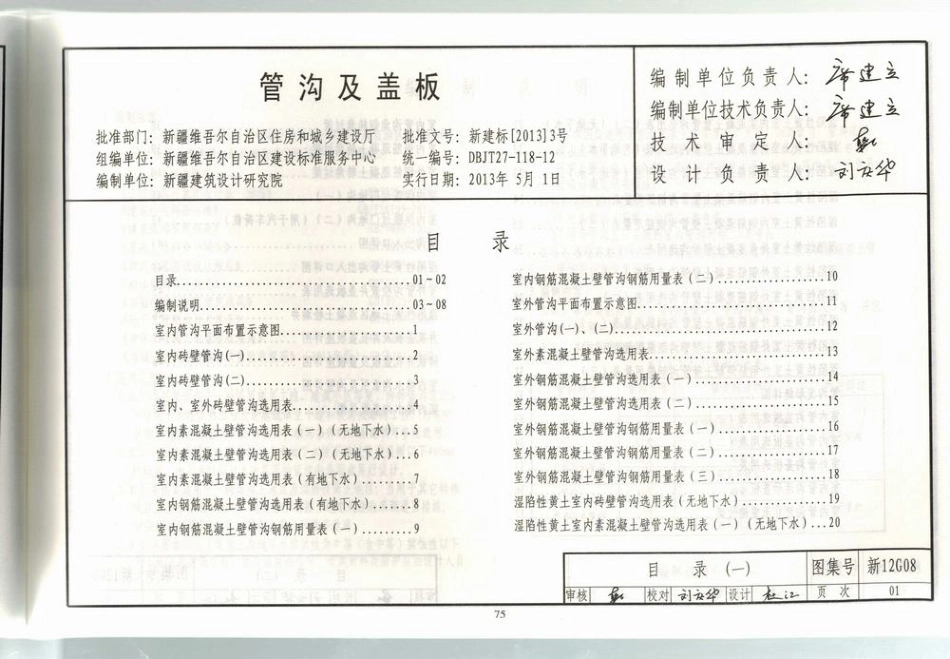 管沟及盖板
批准部门：新疆维吾尔自治区住房和城乡建设厅　批准文号：新建标[2013]3号
组编单位：新疆维吾尔自治区建设标准服务中心　统一编号：DBJT27-118-12
编制单位：新疆建筑设计研究院　实行日期：2013年 5月 1日
编制单位负责人：席建立
编制单位技术负责人：席建立
技术审定人：
设计负责人：
目　录
目录......01~02
编制说明......03~08
室内管沟平面布置示意图......1
室内砖壁管沟(一)......2
室内砖壁管沟(二)......3
室内、室外砖壁管沟选用表......4
室内素混凝土壁管沟选用表（一）(无地下水)...5
室内素混凝土壁管沟选用表（二）(无地下水)...6
室内素混凝土壁管沟选用表（有地下水）......7
室内钢筋混凝土壁管沟选用表（有地下水）......8
室内钢筋混凝土壁管沟钢筋用量表（一）......9
室内钢筋混凝土壁管沟钢筋用量表（二）......10
室外管沟平面布置示意图......11
室外管沟(一)、(二)......12
室外素混凝土壁管沟选用表......13
室外钢筋混凝土壁管沟选用表（一）......14
室外钢筋混凝土壁管沟选用表（二）......15
室外钢筋混凝土壁管沟钢筋用量表（一）......16
室外钢筋混凝土壁管沟钢筋用量表（二）......17
室外钢筋混凝土壁管沟钢筋用量表（三）......18
湿陷性黄土室内砖壁管沟选用表（无地下水）......19
湿陷性黄土室内素混凝土壁管沟选用表（一）(无地下水)...20
目　录　(一)　图集号　新12G08
审核　校对　设计　页　次　01
75